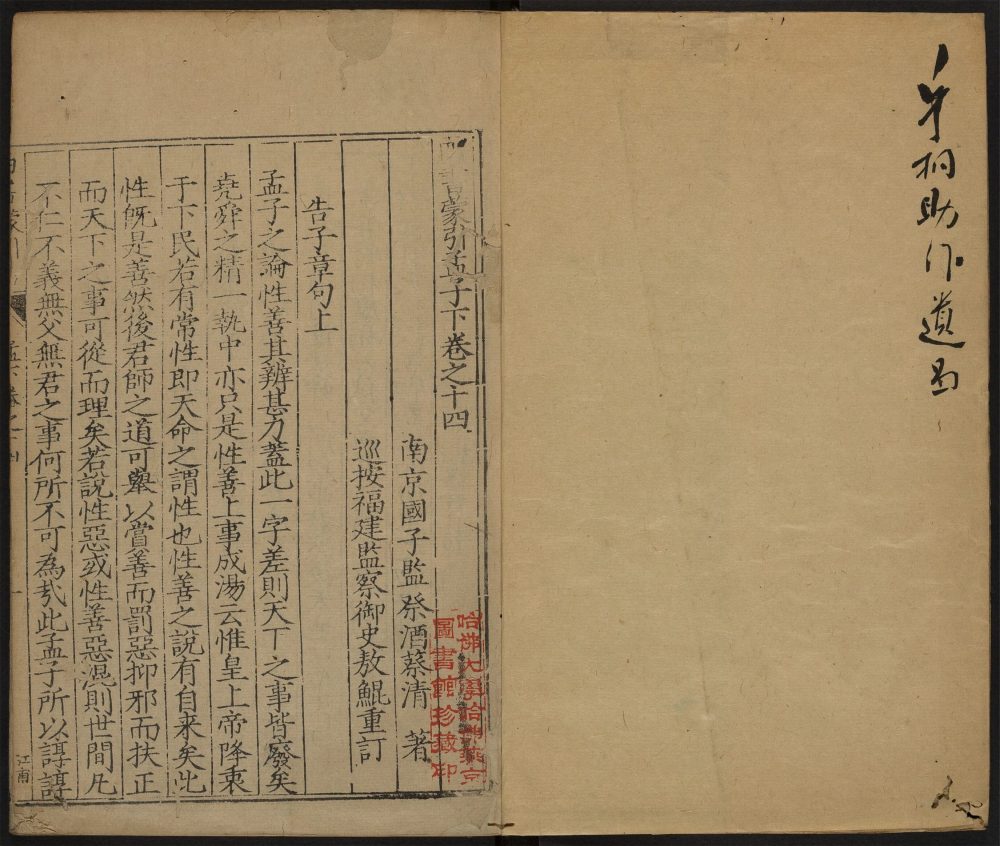 助作道
四書蒙引孟子下卷之十四
南京國子監祭酒蔡清 著
巡按福建監察御史敖鯤重訂
哈佛大學哈佛燕京
圖書館珍藏印
告子章句上
孟子之論性善其辨甚力蓋此一字差則天下之事皆廢矣
堯舜之精一執中亦只是性善上事成湯云惟皇上帝降衷
于下民若有常性即天命之謂性也性善之說有自来矣此
性既是善然後君師之道可舉以賞善而罰惡抑邪而扶正
而天下之事可從而理矣若說性惡或性善惡混則世間凡
不仁不義無父無君之事何所不可為㢤此孟子所以諄諄
江甫